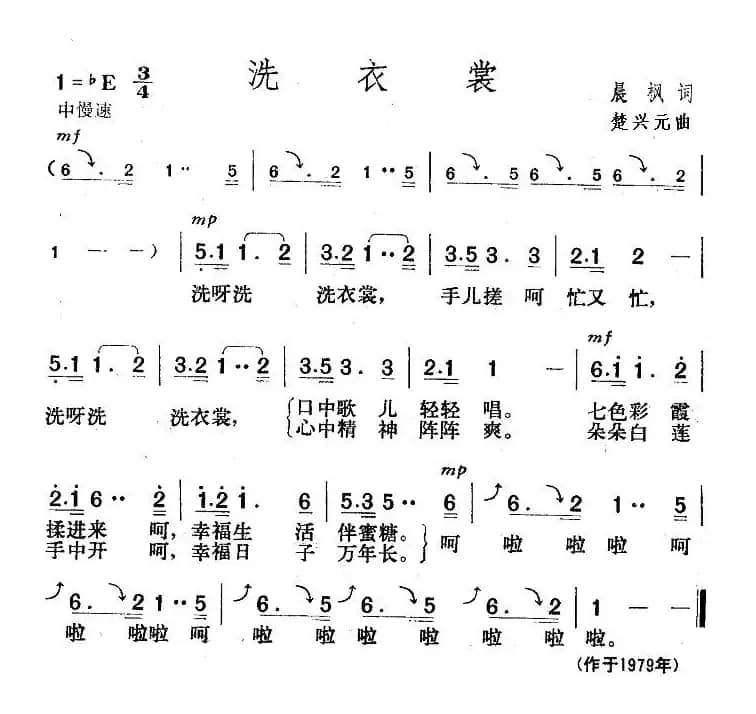 洗衣裳
1=♭E 3/4
中慢速
晨枫词
楚兴元曲
mf
(6.2 1·· 5 | 6.2 1··5 | 6.5 6.5 6.2 |
mp
1 — — ) | 5.1 1.2 | 3.2 1··2 | 3.5 3.3 | 2.1 2 — |
洗呀洗 洗衣裳, 手儿搓 呵 忙又 忙,
mf
5.1 1.2 | 3.2 1··2 | 3.5 3.3 | 2.1 1 — | 6.1 1.2 |
洗呀洗 洗衣裳, {口中歌 儿 轻轻 唱。 七色彩 霞
{心中精 神 阵阵 爽。 朵朵白 莲
mp
2.1 6·· 2 | 1.2 1. 6 | 5.3 5·· 6 | 6.2 1·· 5 |
揉进来 呵, 幸福生 活 伴蜜糖。} 呵 啦 啦 啦 呵
手中开 呵, 幸福日 子 万年长。}
6.2 1··5 | 6.5 6.5 | 6.2 1 — ‖
啦 啦啦 呵 啦 啦 啦 啦 啦 啦 啦。
(作于1979年)